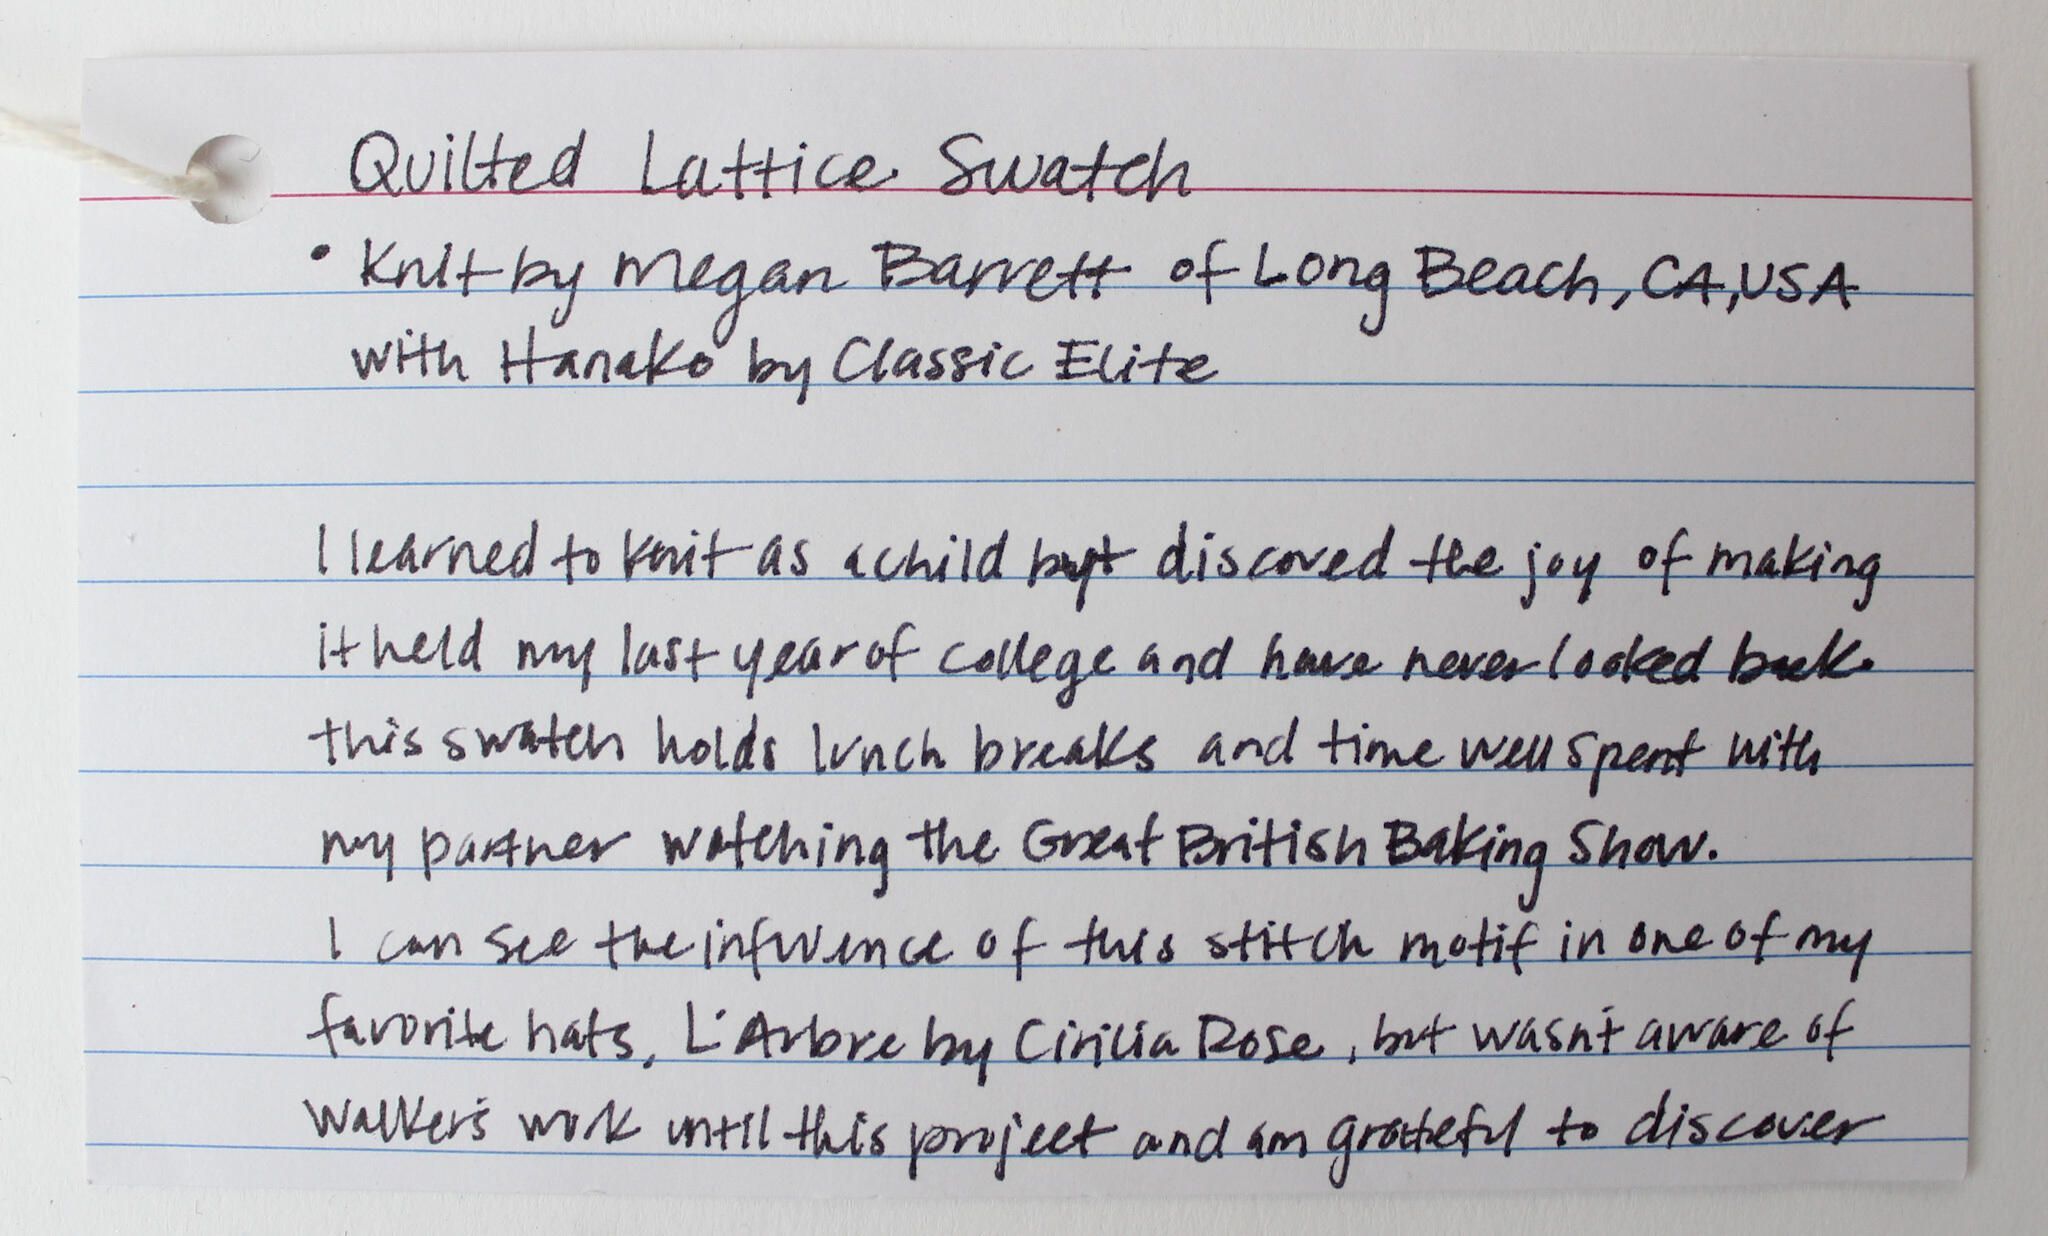 Quilted Lattice Swatch
• Knit by Megan Barrett of Long Beach, CA, USA
with Hanako by Classic Elite
I learned to knit as a child but discovered the joy of making
it held my last year of college and have never looked back.
this swatch holds lunch breaks and time well spent with
my partner watching the Great British Baking Show.
I can see the influence of this stitch motif in one of my
favorite hats, L'Arbre by Cirilia Rose, but wasn't aware of
Walker's work until this project and am grateful to discover